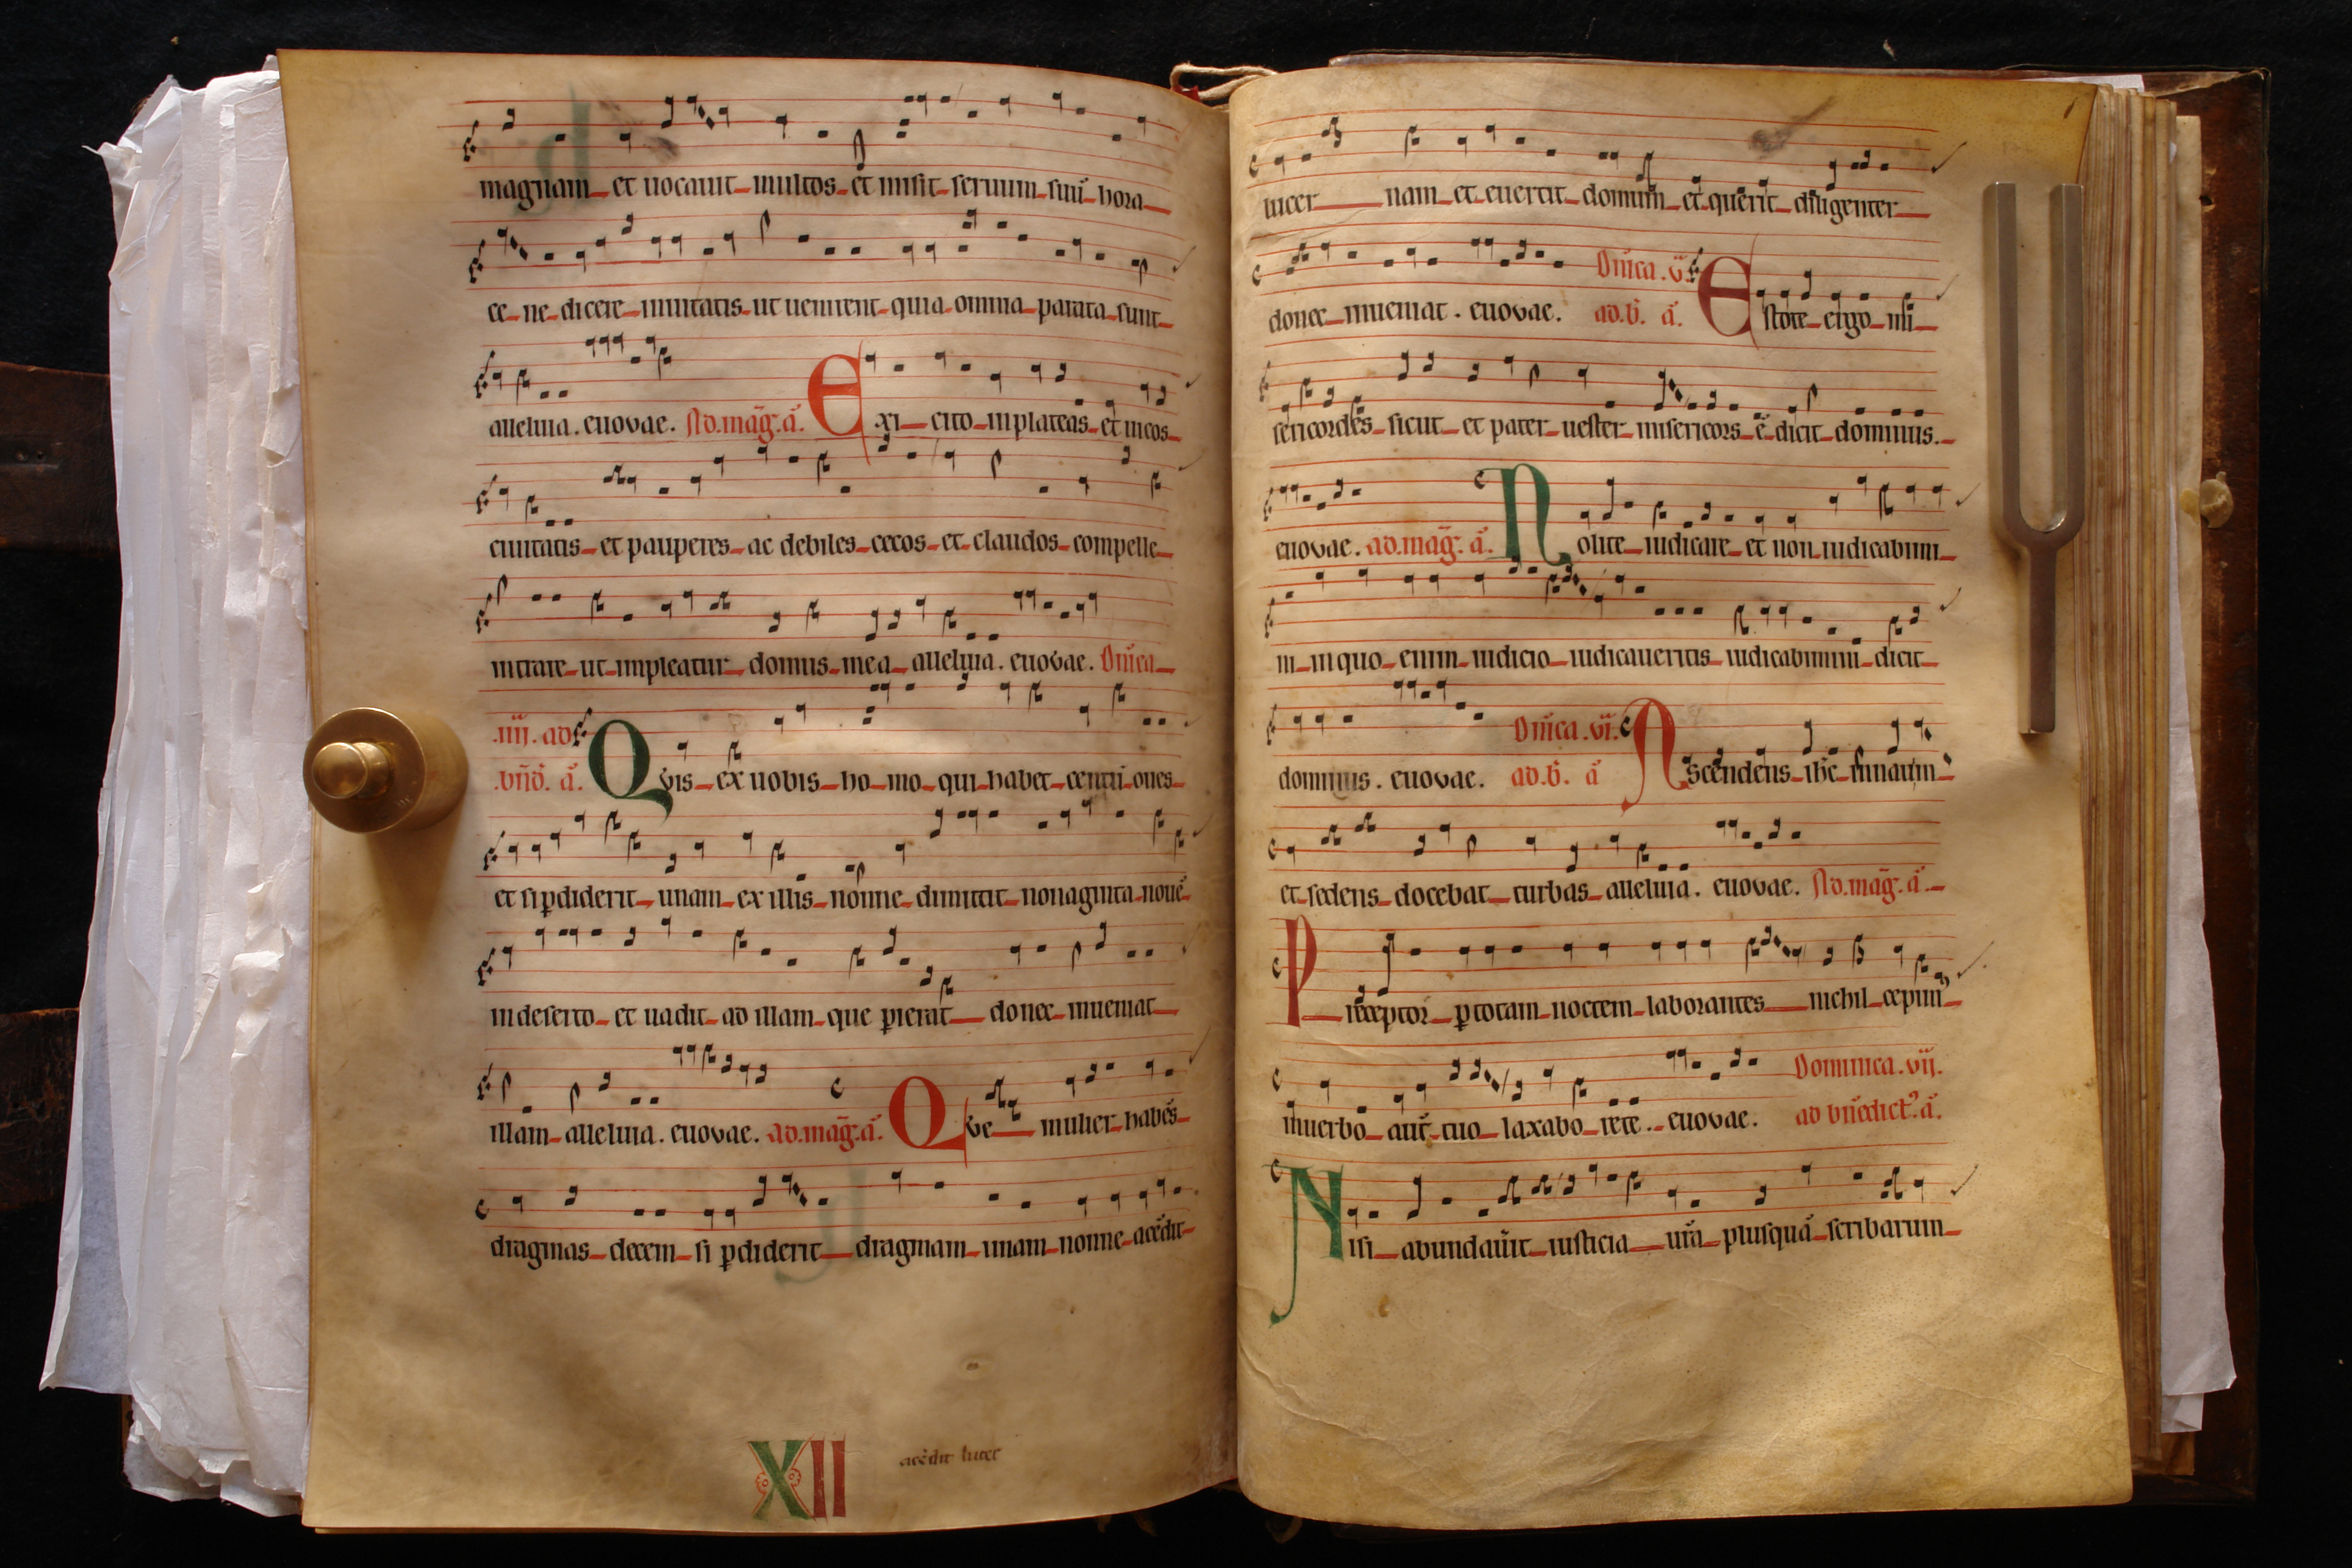 magnam et uocauit multos et misit seruum suū hora
ce ne dicere inuitatis ut uenirent quia omnia parata sunt
alleluia. euovae. Ad.mag̅.a̅. Exi cito in plateas et uicos
ciuitatis et pauperes ac debiles cecos et claudos compelle
intrare ut impleatur domus mea alleluia. euovae. Dn̄ica
.iiij. ad
.bn̄d̄. a̅. Qvis ex uobis homo qui habet centū oues
et si ꝑdiderit unam ex illis nonne dimittit nonaginta nouē
in deserto et uadit ad illam que ꝑierat donec inueniat
illam alleluia. euovae. ad.mag̅.a̅. Qve mulier habēs
dragmas decem si ꝑdiderit dragmam unam nonne acēdit
XII acēdit lucer
lucer nam et euertit domum et querit diligenter
donec inueniat. euovae. Dn̄ica.v̄.
ad.b̄. a̅. Estote ergo mi
sericordes sicut et pater uester misericors ē dicit dominus.
euovae. ad.mag̅. a̅. Nolite iudicare et non iudicabimi
ni in quo enim iudicio iudicaueritis iudicabimini dicit
dominus. euovae. Dn̄ica.vi.
ad.b̄. a̅ Ascendens ih̄c in nauim
et sedens docebat turbas alleluia. euovae. Ad.mag̅.a̅.
Preceptor ꝑ totam noctem laborantes nichil cepimꝰ
in uerbo aut̄ tuo laxabo rete. euovae. Dominica.vij.
ad bn̄edictꝰ.a̅.
Nisi abundau̅it iusticia ur̄a plusquā scribarum